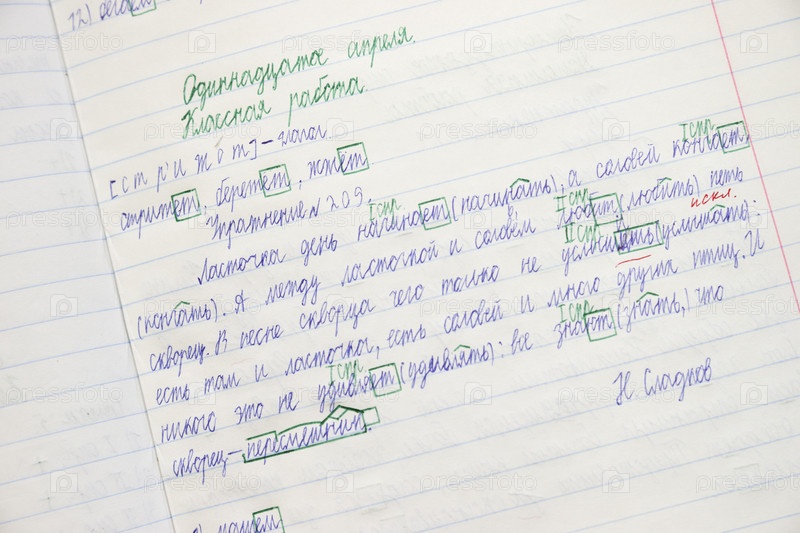 12) бегаем
Одиннадцатое апреля.
Классная работа.
[стр'ижот] – глагол
стрижет, бережет, жжет
Упражнение №209.
I спр. I спр.
Ласточка день начинает (начинать), а соловей кончает
II спр.
(кончать). А между ласточкой и соловьем любит (любить) петь
II спр. искл.
скворец. В песне скворца чего только не услышишь (услышать):
есть там и ласточка, есть соловей и много других птиц. И
I спр. I спр.
никого это не удивляет (удивлять): все знают (знать,) что
скворец – пересмешник.
Н. Сладков
машем